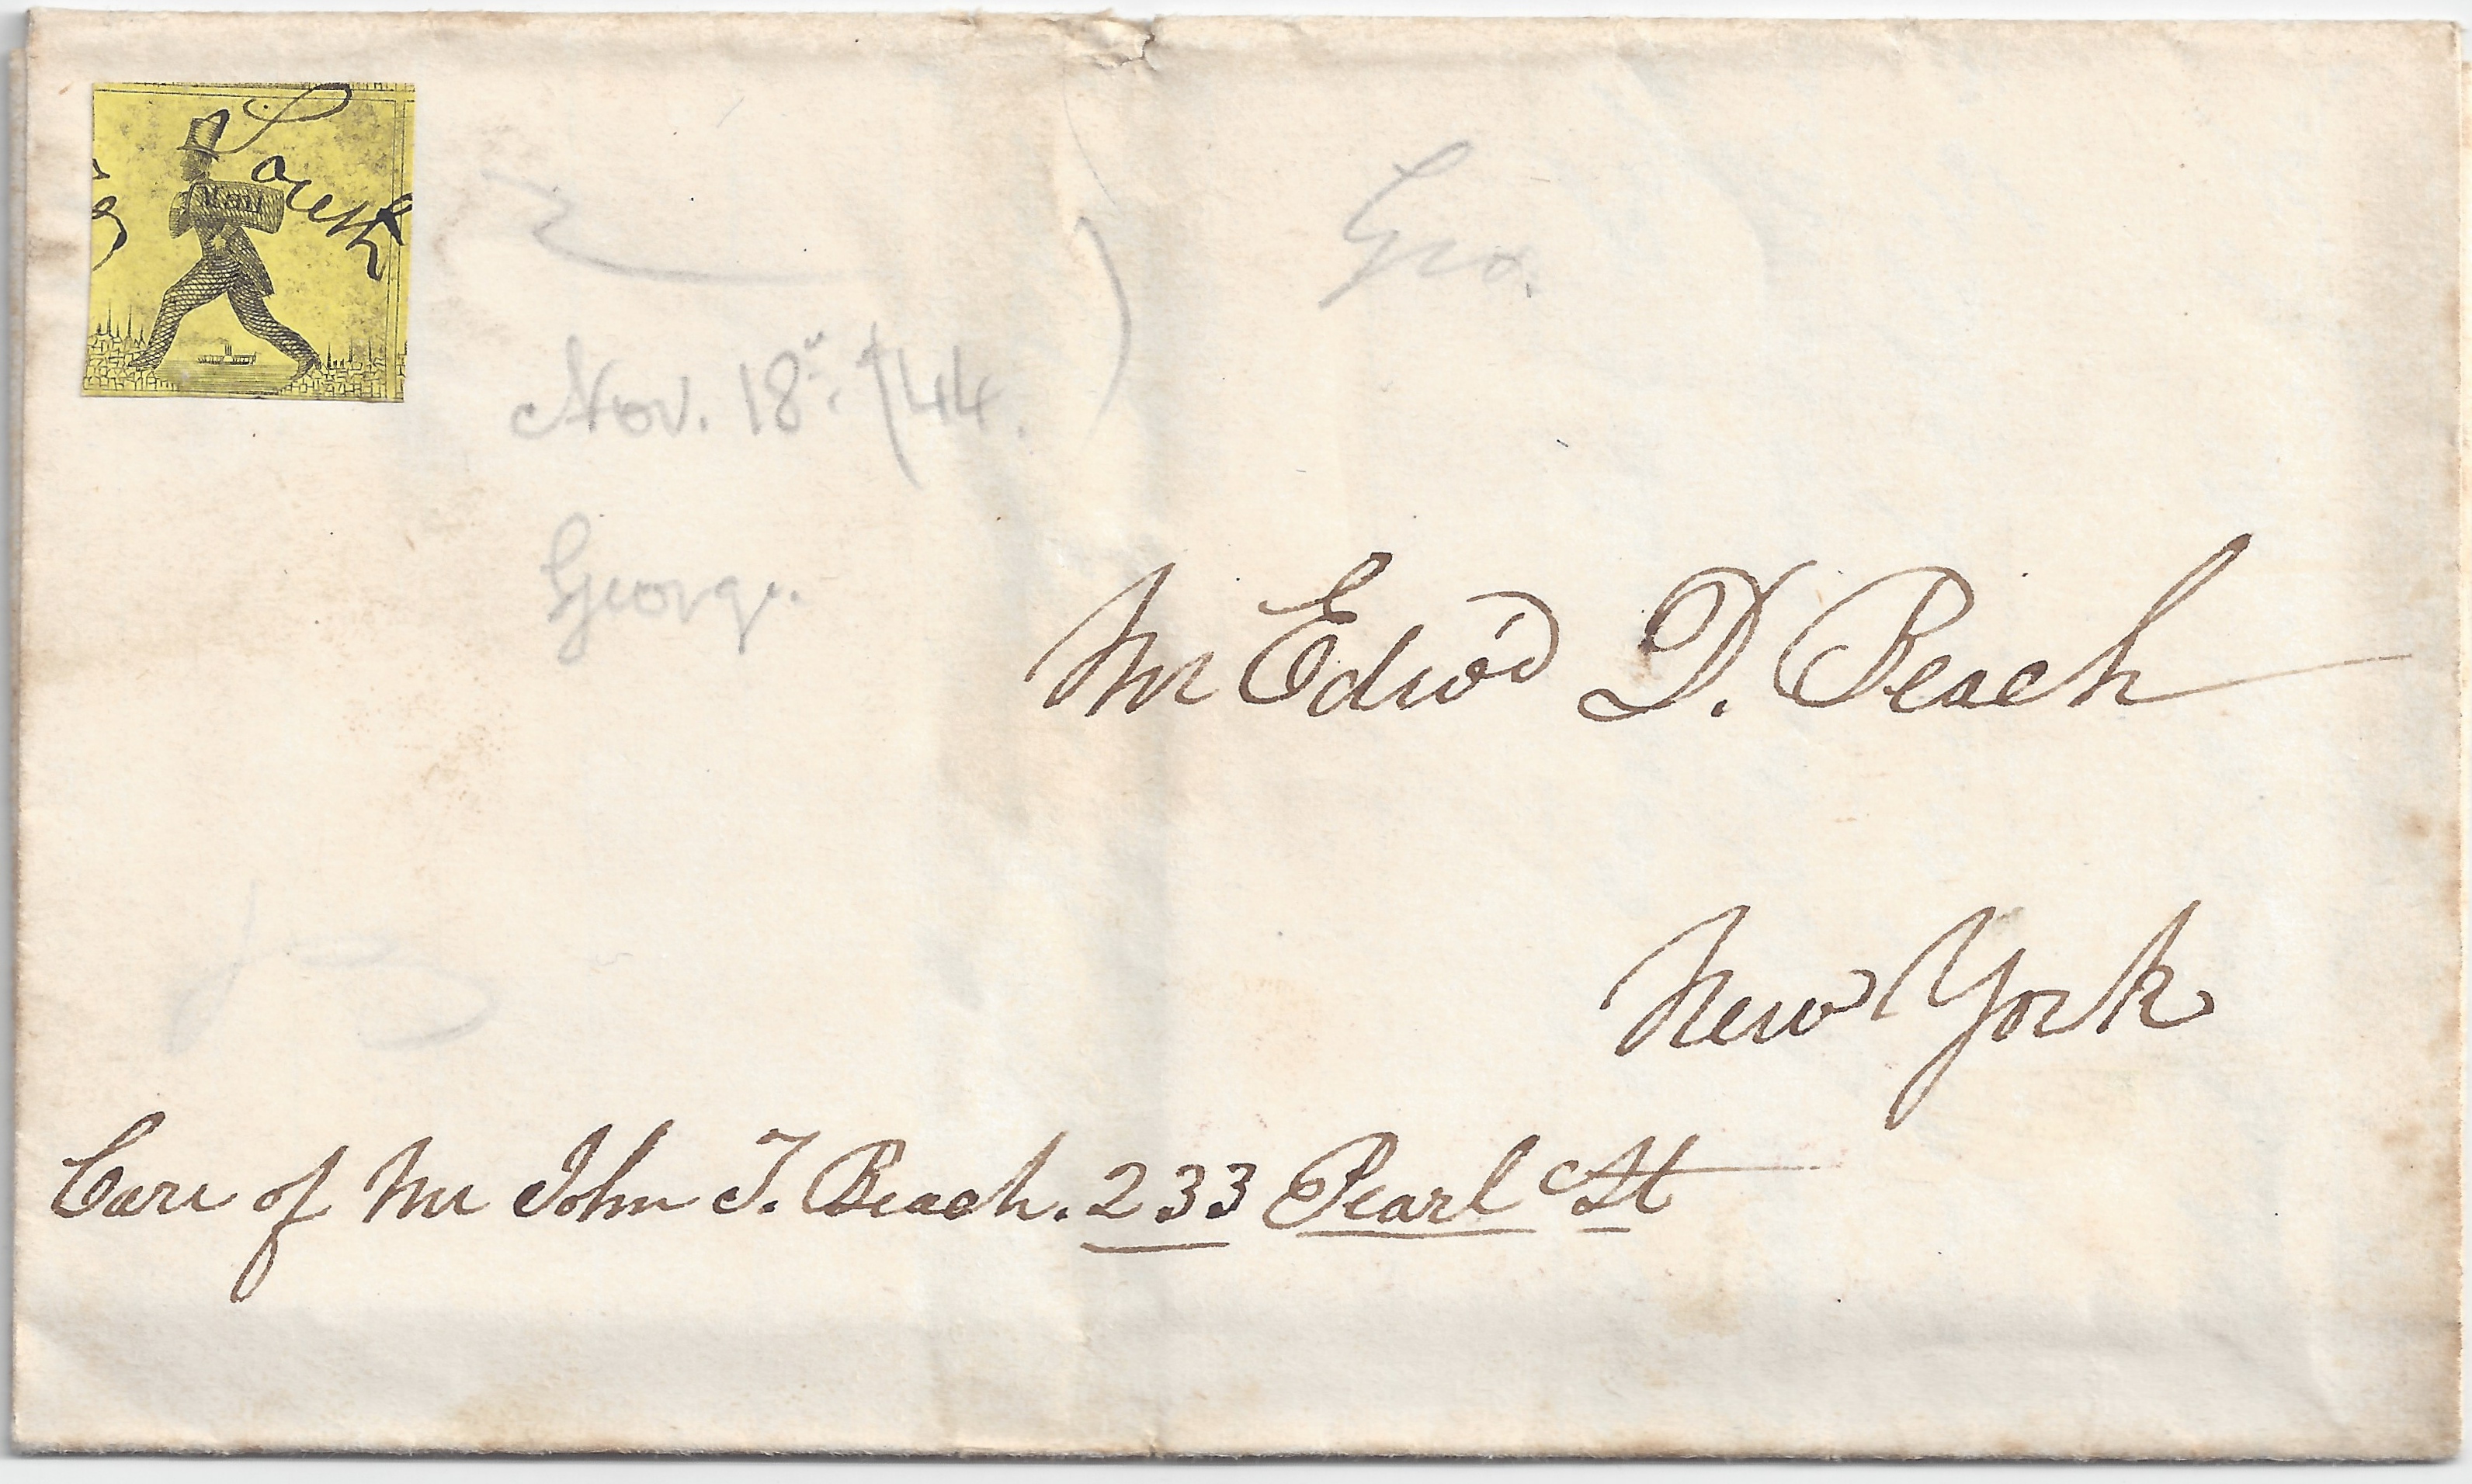 Mail
South
Geo.
Nov. 18th. /44.
George.
Mr Edwd D. Beach
New York
Care of Mr John T. Beach. 233 Pearl St